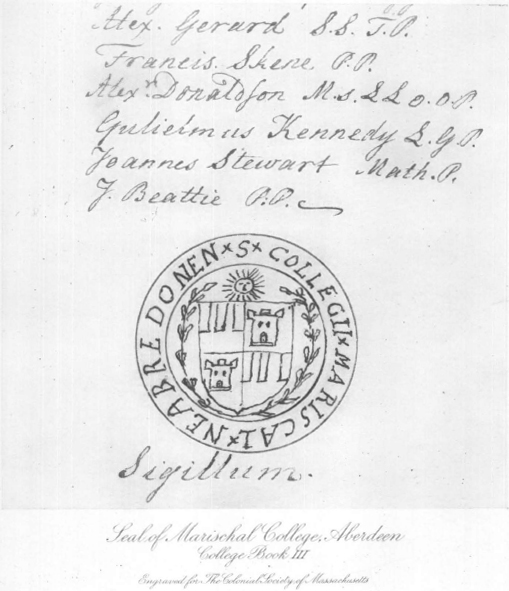 Alex. Gerard S.S. T.P.
Francis. Skene P.P.
Alex.r Donaldson M.s. L L o.o P.
Gulielmus Kennedy L.G.P.
Joannes Stewart Math. P.
J. Beattie P.P.
S × COLLEGII × MARISCAL × NEABREDONEN ×
Sigillum.
Seal of Marischal College, Aberdeen
College Book III
Engraved for The Colonial Society of Massachusetts